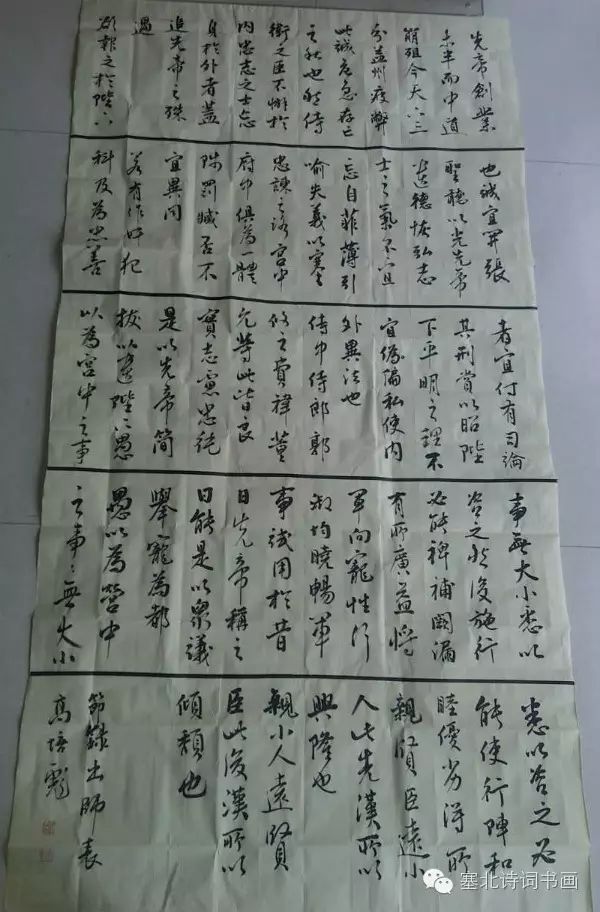 先帝創業
未半而中道
崩殂今天下三
分益州疲弊
此誠危急存亡
之秋也然侍
衛之臣不懈於
内忠志之士忘
身於外者蓋
追先帝之殊
遇
欲報之於陛下
也誠宜開張
聖聽以光先帝
遺德恢弘志
士之氣不宜
忘自菲薄引
喻失義以塞
忠諫之路宮中
府中俱為一體
陟罰臧否不
宜異同
若有作奸犯
科及為忠善
者宜付有司論
其刑賞以昭陛
下平明之理不
宜偏私使内
外異法也
侍中侍郎郭
攸之費禕董
允等此皆良
實志慮忠純
是以先帝簡
拔以遺陛下愚
以為宮中之事
事無大小悉以
咨之然後施行
必能裨補闕漏
有所廣益將
軍向寵性行
淑均曉暢軍
事試用於昔
日先帝稱之
日能是以眾議
舉寵為都
愚以為營中
之事〻無大小
悉以咨之必
能使行陣和
睦優劣得所
親賢臣遠小
人此先漢所以
興隆也
親小人遠賢
臣此後漢所以
傾頹也
節錄出師表
高培彪
塞北诗词书画